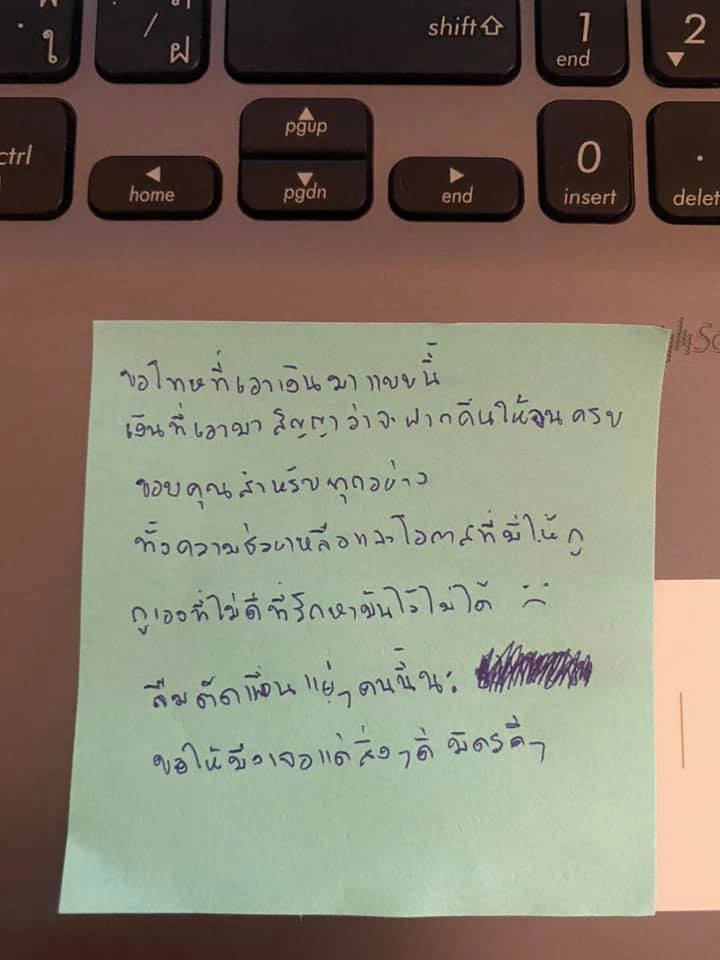 ใ
/
ฝ
shift
1
end
2
ctrl
home
pgup
pgdn
end
0
insert
.
delet
So
ขอโทษที่เอาเงินมาแบบนี้
เงินที่เอามา สัญญาว่าจะฝากคืนให้จนครบ
ขอบคุณสำหรับทุกอย่าง
ทั้งความช่วยเหลือและโอกาสที่มีให้กู
กูเองที่ไม่ดีที่รักษามันไว้ไม่ได้ :(
ลืมตัดเพื่อนแย่ๆ คนนี้นะ
ขอให้มึงเจอแต่สิ่งๆดี มิตรดีๆ